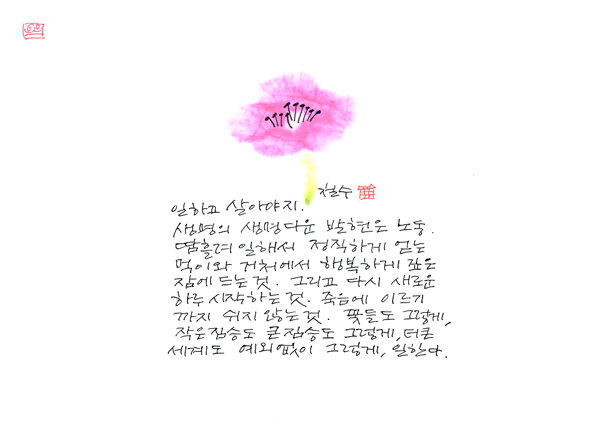 철수
일하고 살아야지.
생명의 생명다운 발현은 노동.
땀흘려 일해서 정직하게 얻는
먹이와 거처에서 행복하게 깊은
잠에 드는 것. 그리고 다시 새로운
하루 시작하는 것. 죽음에 이르기
까지 쉬지 않는 것. 꽃들도 그렇게,
작은짐승도 큰짐승도 그렇게, 더큰
세계도 예외없이 그렇게, 일한다.